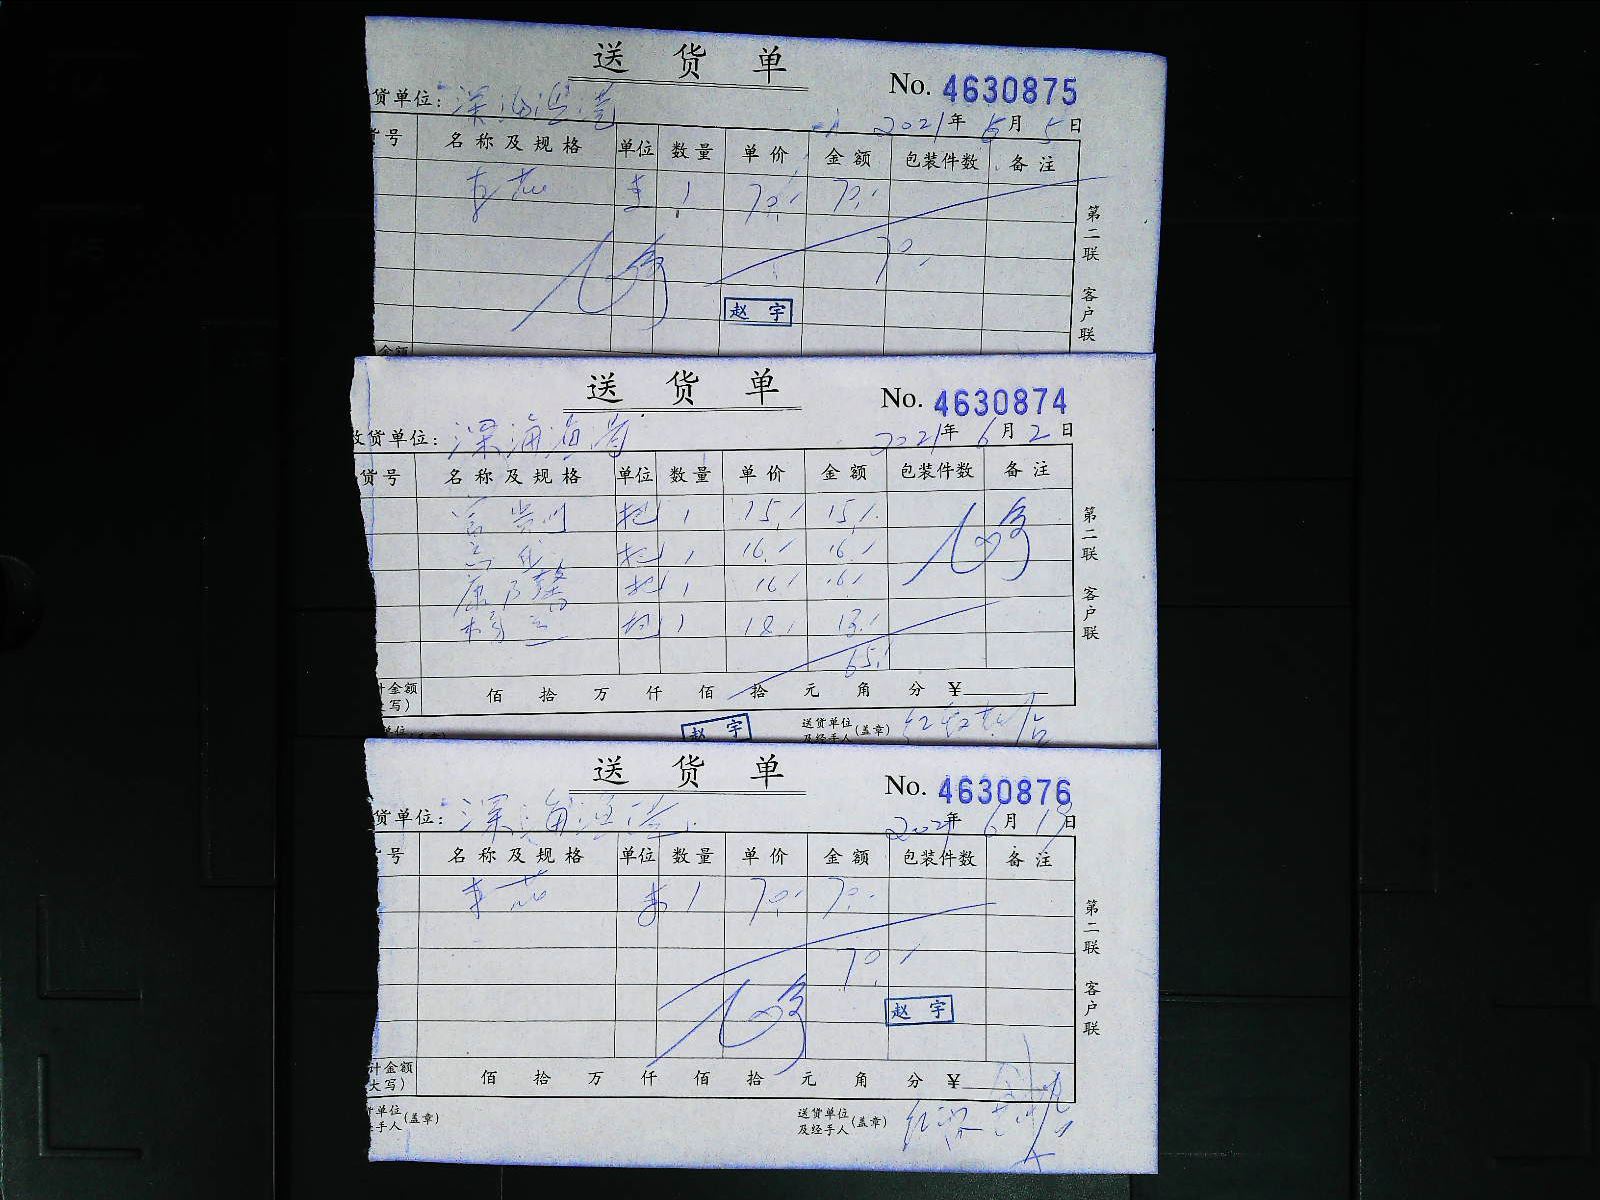 送货单
No. 4630875
货单位: 深海渔港
2021年 6月 5日
号 名称及规格 单位 数量 单价 金额 包装件数 备注
1 70.- 70.-
70.-
赵宇
第二联 客户联
金额
送货单
No. 4630874
收货单位: 深海渔港
2021年 6月 2日
货号 名称及规格 单位 数量 单价 金额 包装件数 备注
把 1 15.- 15.-
把 1 16.- 16.-
康乃馨 把 1 16.- 16.-
把 1 18.- 18.-
65.-
第二联 客户联
计金额(大写) 佰 拾 万 仟 佰 拾 元 角 分 ¥
赵宇
送货单位及经手人(盖章)
送货单
No. 4630876
货单位: 深海渔港
2021年 6月 日
号 名称及规格 单位 数量 单价 金额 包装件数 备注
1 70.- 70.-
70.-
赵宇
第二联 客户联
计金额(大写) 佰 拾 万 仟 佰 拾 元 角 分 ¥
货单位经手人(盖章) 送货单位及经手人(盖章)